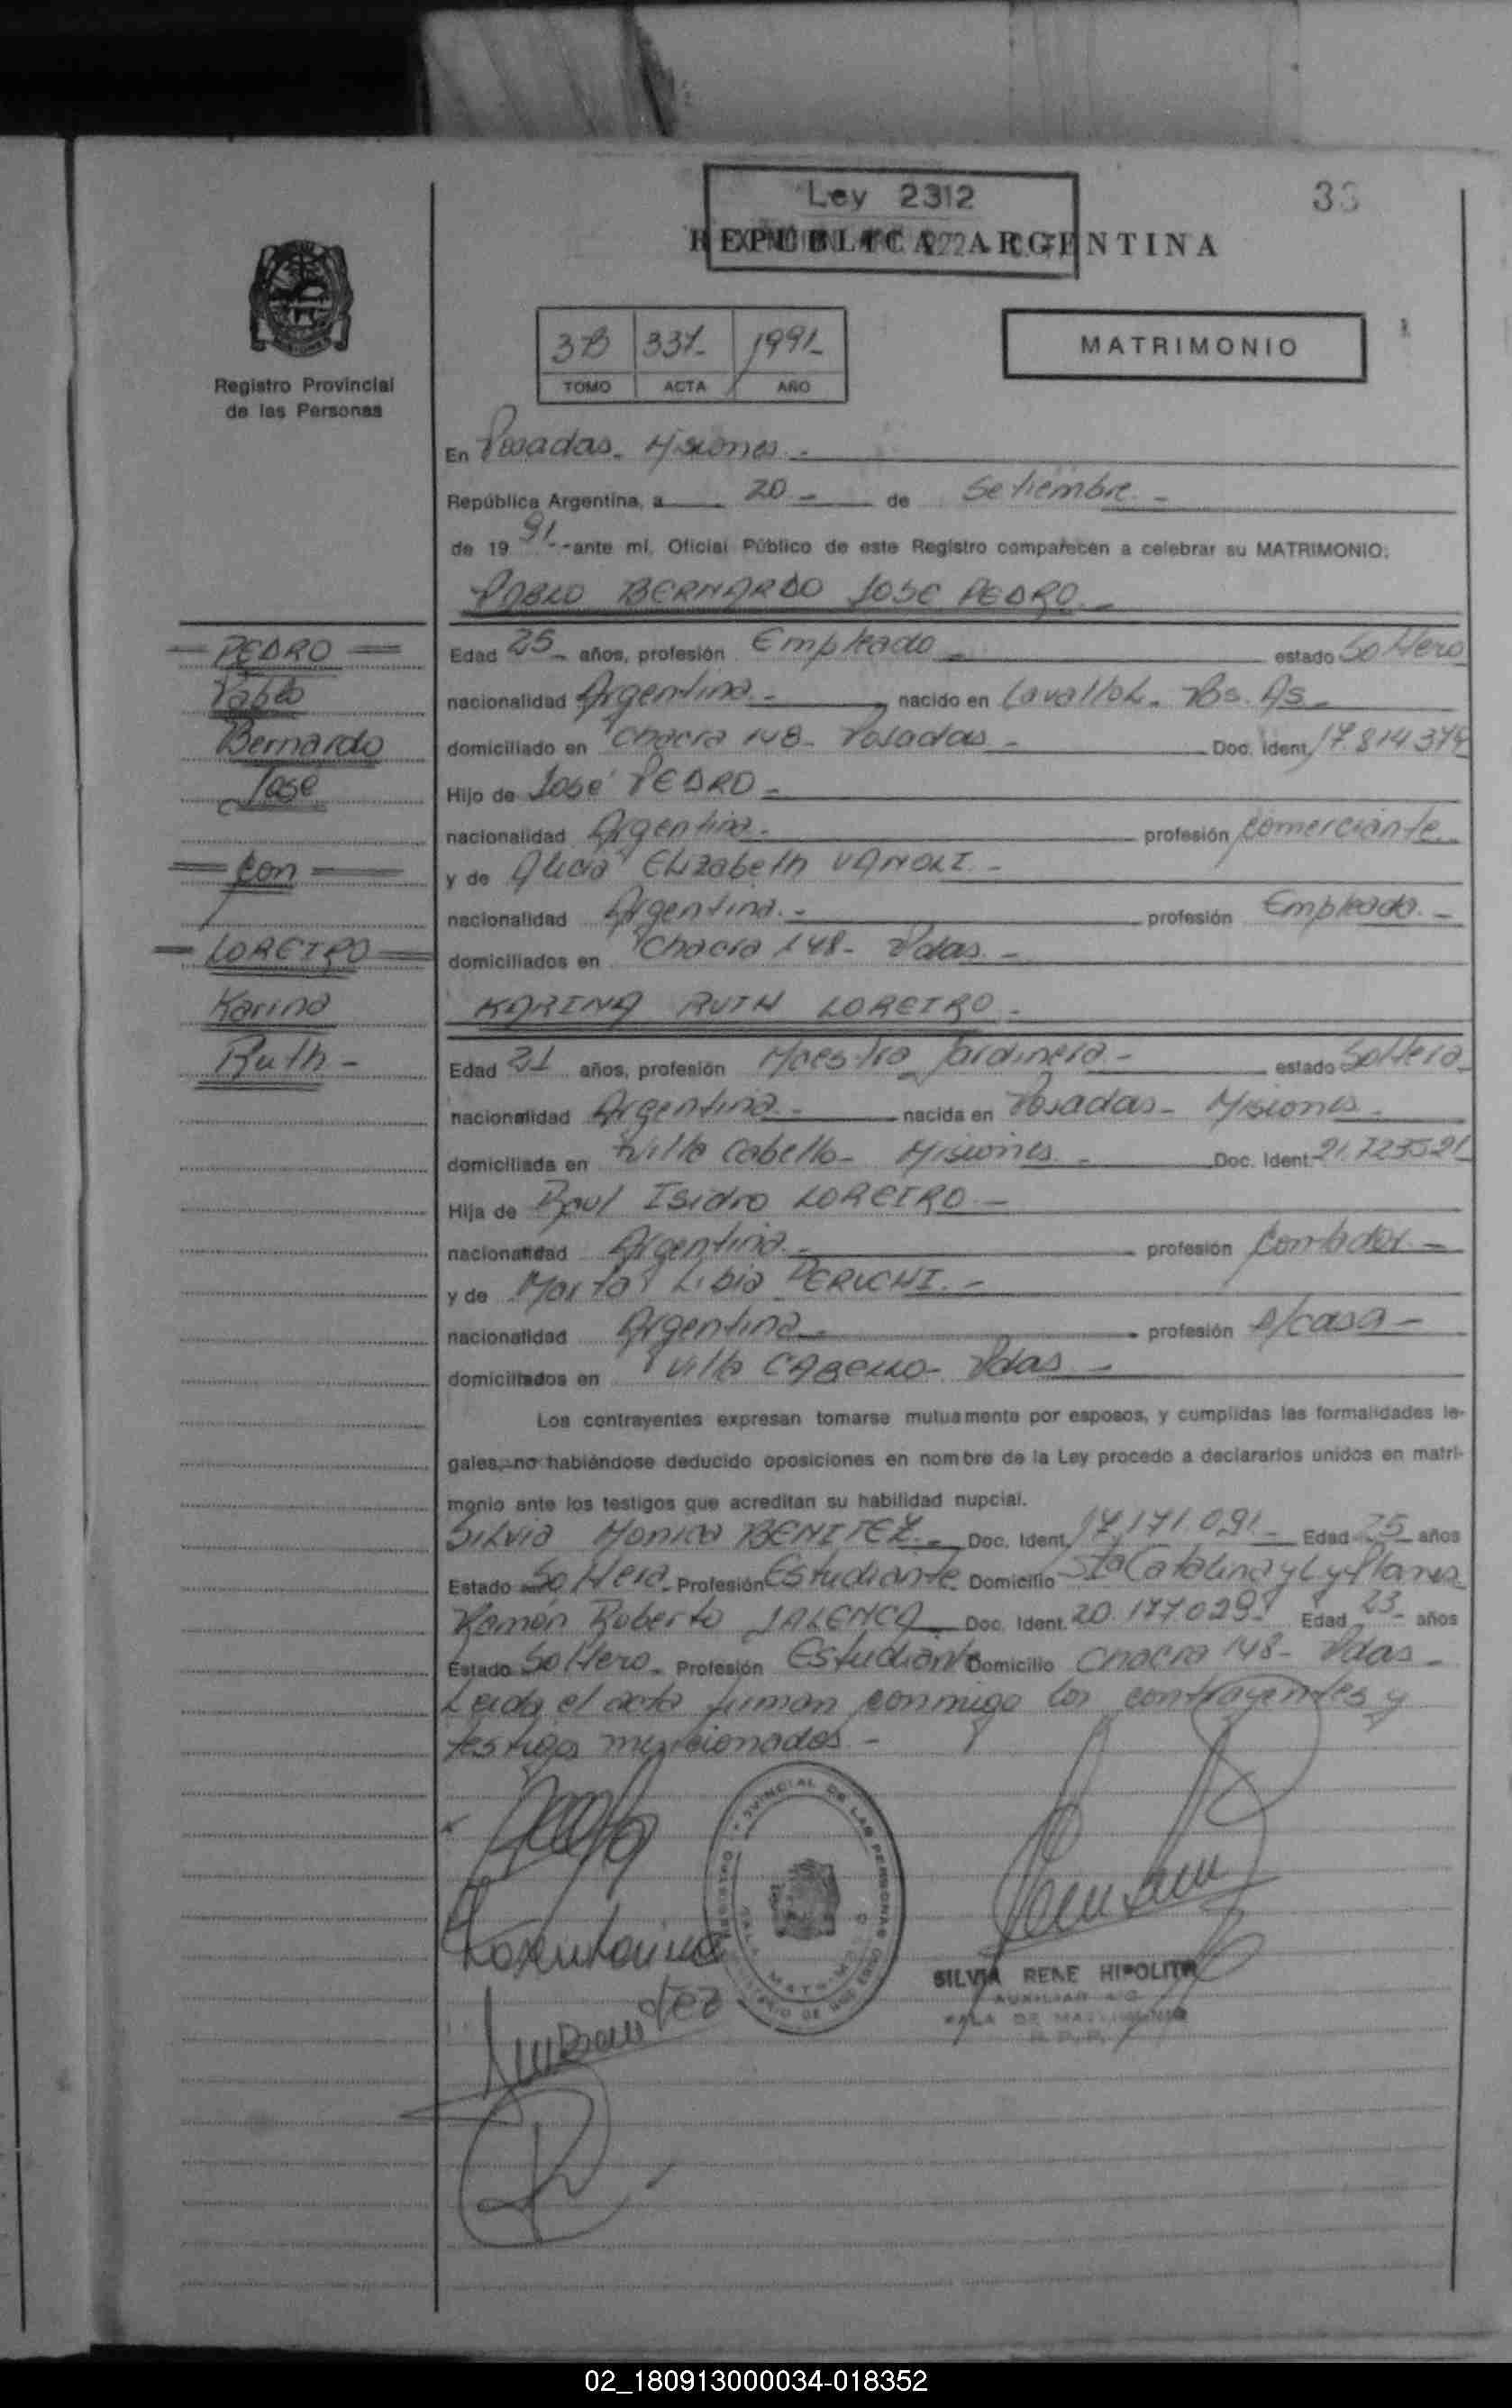 Ley 2312
33
REPUBLICA ARGENTINA
Registro Provincial
de las Personas
3B 337- 1991-
TOMO ACTA AÑO
MATRIMONIO
En Posadas- Misiones.-
República Argentina, a 20- de Setiembre.-
de 19 91.- ante mí, Oficial Público de este Registro comparecen a celebrar su MATRIMONIO:
PABLO BERNARDO JOSE PEDRO.-
PEDRO
Pablo
Bernardo
Jose
con
LOREIRO
Karina
Ruth-
Edad 25- años, profesión Empleado- estado Soltero
nacionalidad Argentina.- nacido en Lavallol- Bs. As-
domiciliado en Chacra 148- Posadas- Doc. Ident. 17.814.374
Hijo de José PEDRO-
nacionalidad Argentina.- profesión Comerciante-
y de Alicia Elizabeth VANOLI.-
nacionalidad Argentina.- profesión Empleada.-
domiciliados en Chacra 148- Pdas.-
KARINA RUTH LOREIRO-
Edad 21 años, profesión Maestra Jardinera- estado Soltera-
nacionalidad Argentina- nacida en Posadas- Misiones-
domiciliada en Villa Cabello- Misiones- Doc. Ident. 21.723521
Hija de Raul Isidro LOREIRO-
nacionalidad Argentina.- profesión Contador.-
y de Marta Libia PERUCHI.-
nacionalidad Argentina- profesión s/casa-
domiciliados en Villa CABELLO- Pdas-
Los contrayentes expresan tomarse mutuamente por esposos, y cumplidas las formalidades le-
gales, no habiéndose deducido oposiciones en nombre de la Ley procedo a declararlos unidos en matri-
monio ante los testigos que acreditan su habilidad nupcial.
Silvia Monica BENITEZ.- Doc. Ident. 17.171.091- Edad 25- años
Estado Soltera- Profesión Estudiante Domicilio Sta Catalina y L y Planes
Ramón Roberto Doc. Ident. 20.177.029 Edad 23- años
Estado Soltero- Profesión Estudiante Domicilio Chacra 148- Pdas-
Leida el acta firman conmigo los contrayentes y
testigos mencionados-
SILVIA RENE HIPOLITO
AUXILIAR
SALA DE MATRIMONIO
R. P. P.
02_180913000034-018352